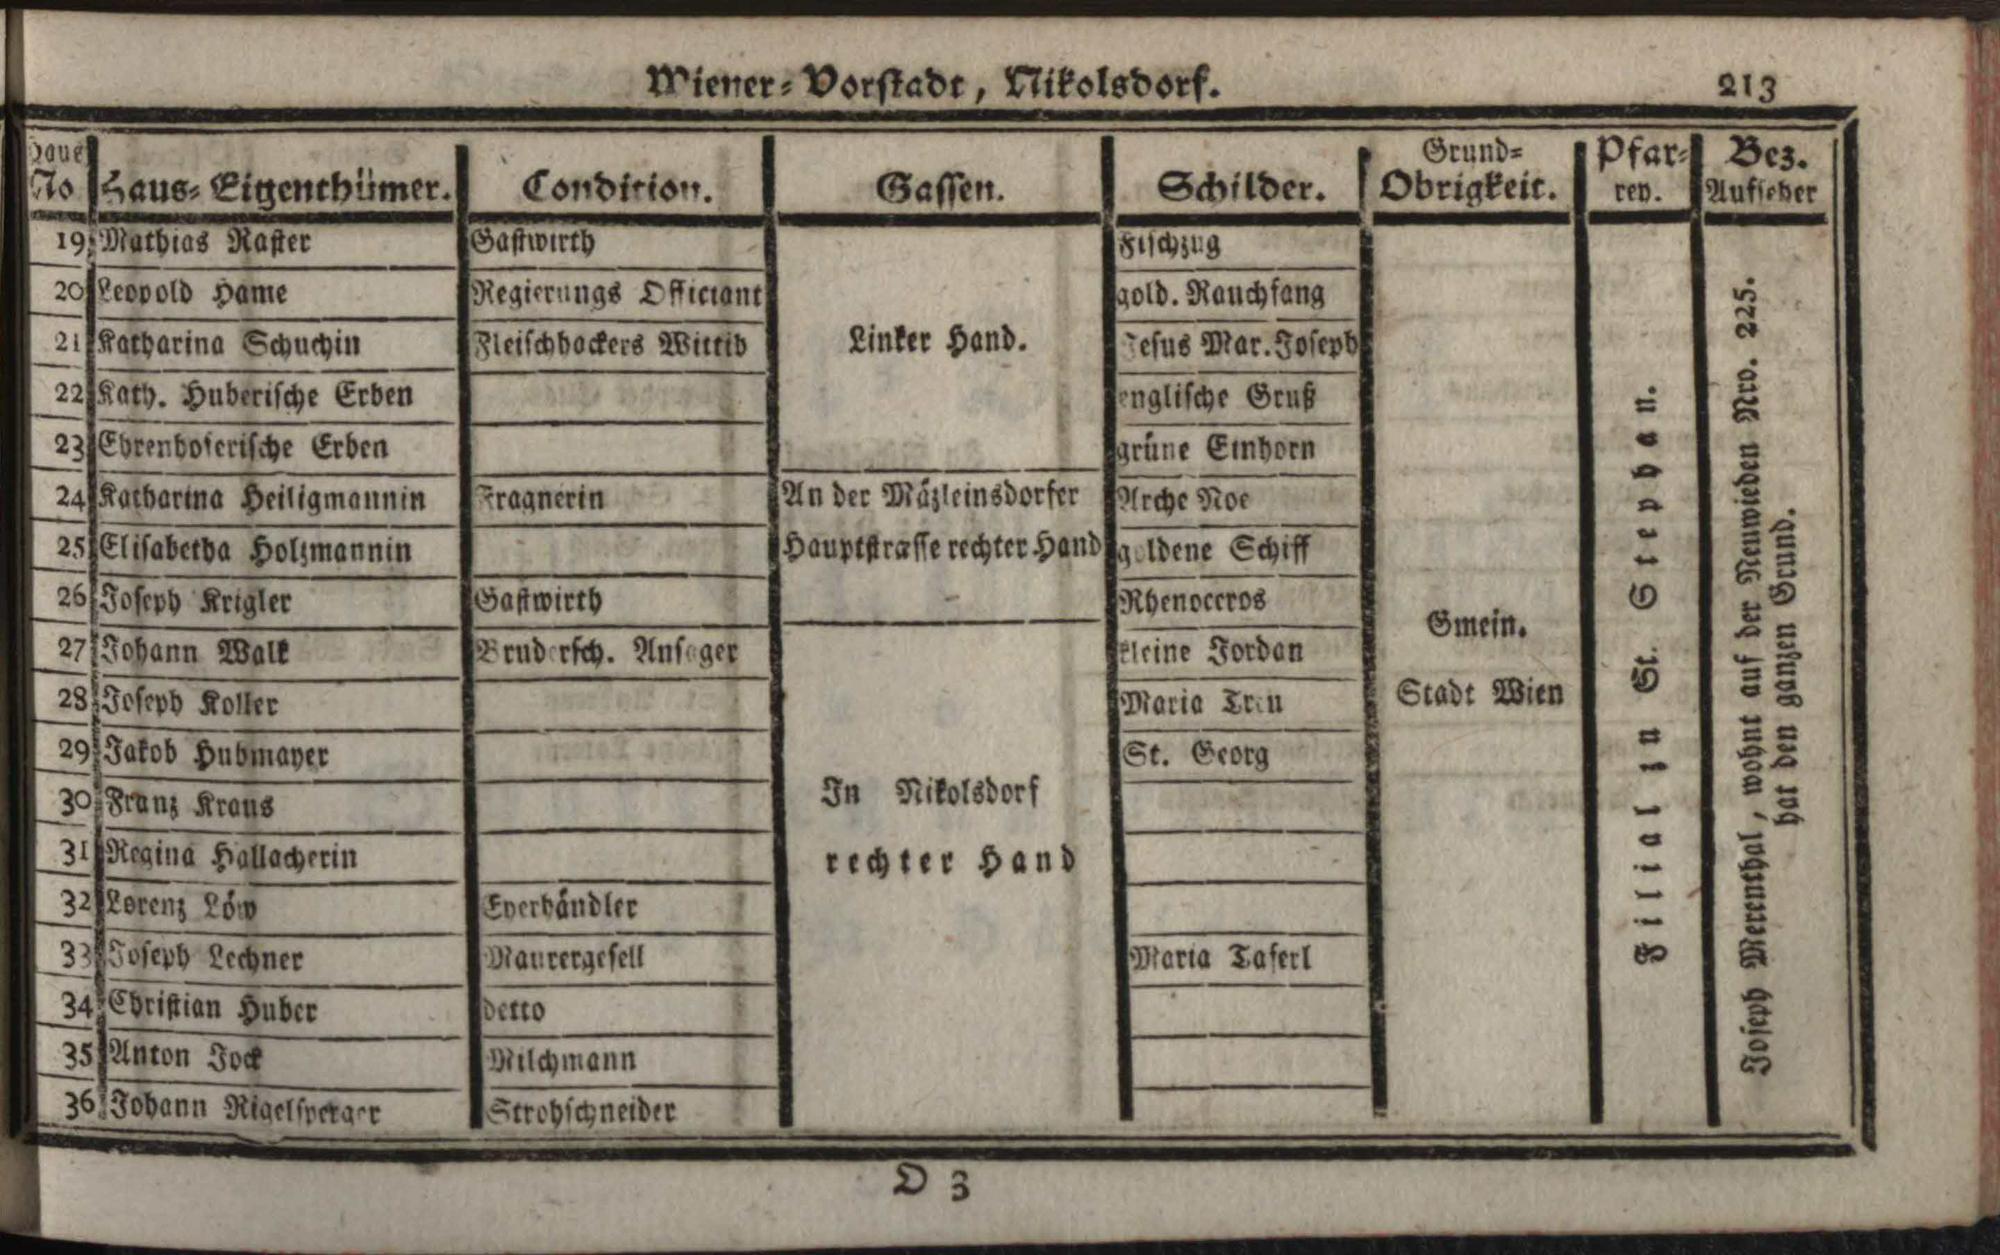 Wiener-Vorstadt, Nikolsdorf. 213
Haus No Haus-Eigenthümer. Condition. Gassen. Schilder. Grund-Obrigkeit. Pfar-rey. Bez. Aufseher
19 Mathias Raster Gastwirth Fischzug
20 Leopold Hame Regierungs Officiant gold. Rauchfang
Linker Hand.
21 Katharina Schuchin Fleischhackers Wittib Jesus Mar. Joseph
22 Kath. Huberische Erben englische Gruß
23 Ehrenhoferische Erben grüne Einhorn
24 Katharina Heiligmannin Fragnerin An der Mäzleinsdorfer Arche Noe
25 Elisabetha Holzmannin Hauptstrasse rechter Hand goldene Schiff
26 Joseph Krigler Gastwirth Rhenoceros
Gmein.
27 Johann Walk Brudersch. Ansager kleine Jordan
28 Joseph Koller Maria Treu Stadt Wien
29 Jakob Hubmayer St. Georg
30 Franz Kraus In Nikolsdorf
31 Regina Hallacherin rechter Hand
32 Lorenz Löw Eyerhändler
33 Joseph Lechner Maurergesell Maria Taferl
34 Christian Huber detto
35 Anton Jock Milchmann
36 Johann Rigelsperger Strohschneider
Filial zu St. Stephan.
Joseph Merenthal, wohnt auf der Neuwieden Nro. 225.
hat den ganzen Grund.
D 3